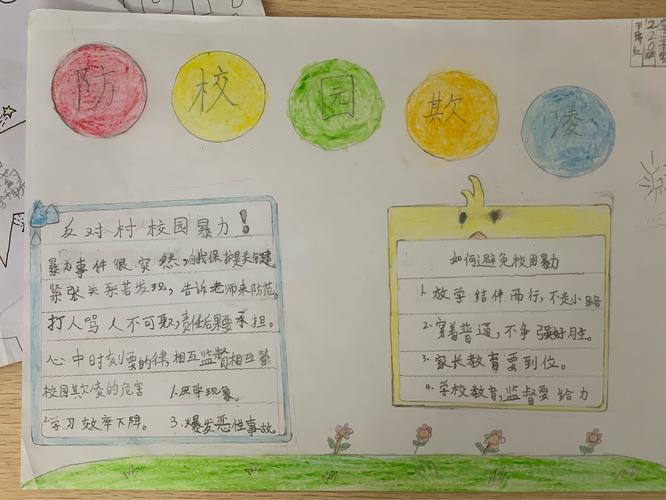 防校园欺凌
22
反对村校园暴力!
暴力事件很突然,自我保护是关键。
紧张关系若发现,告诉老师来防范。
打人骂人不可取,责任后果要承担。
心中时刻要的律相互监督相互
校园欺凌的危害 1.厌学现象。
2.学习效率下降。 3.爆发恶性事故。
如何避免校园暴力
1.放学结伴而行,不走小路
2.穿着普通,不争强好胜。
3.家长教育要到位。
4.学校教育,监督要给力